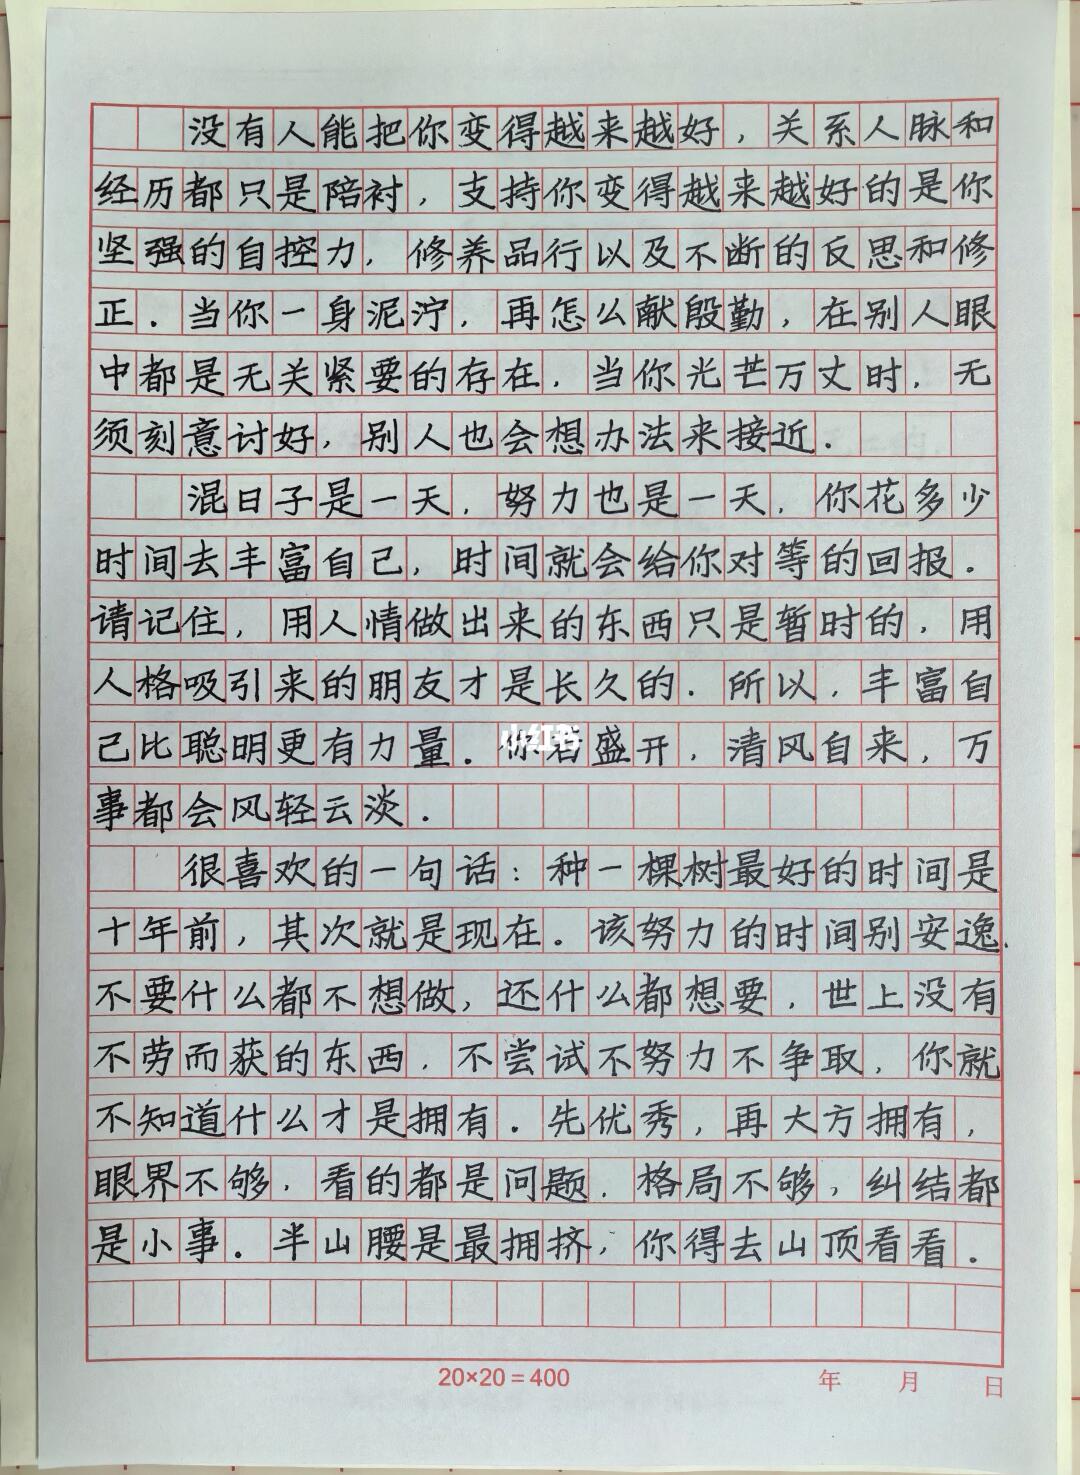 没有人能把你变得越来越好，关系人脉和
经历都只是陪衬，支持你变得越来越好的是你
坚强的自控力，修养品行以及不断的反思和修
正．当你一身泥泞，再怎么献殷勤，在别人眼
中都是无关紧要的存在，当你光芒万丈时，无
须刻意讨好，别人也会想办法来接近．
混日子是一天，努力也是一天，你花多少
时间去丰富自己，时间就会给你对等的回报．
请记住，用人情做出来的东西只是暂时的，用
人格吸引来的朋友才是长久的．所以，丰富自
己比聪明更有力量．你若盛开，清风自来，万
小红书
事都会风轻云淡．
很喜欢的一句话：种一棵树最好的时间是
十年前，其次就是现在。该努力的时间别安逸．
不要什么都不想做，还什么都想要，世上没有
不劳而获的东西，不尝试不努力不争取，你就
不知道什么才是拥有．先优秀，再大方拥有，
眼界不够，看的都是问题．格局不够，纠结都
是小事．半山腰是最拥挤，你得去山顶看看．
20×20=400 年 月 日